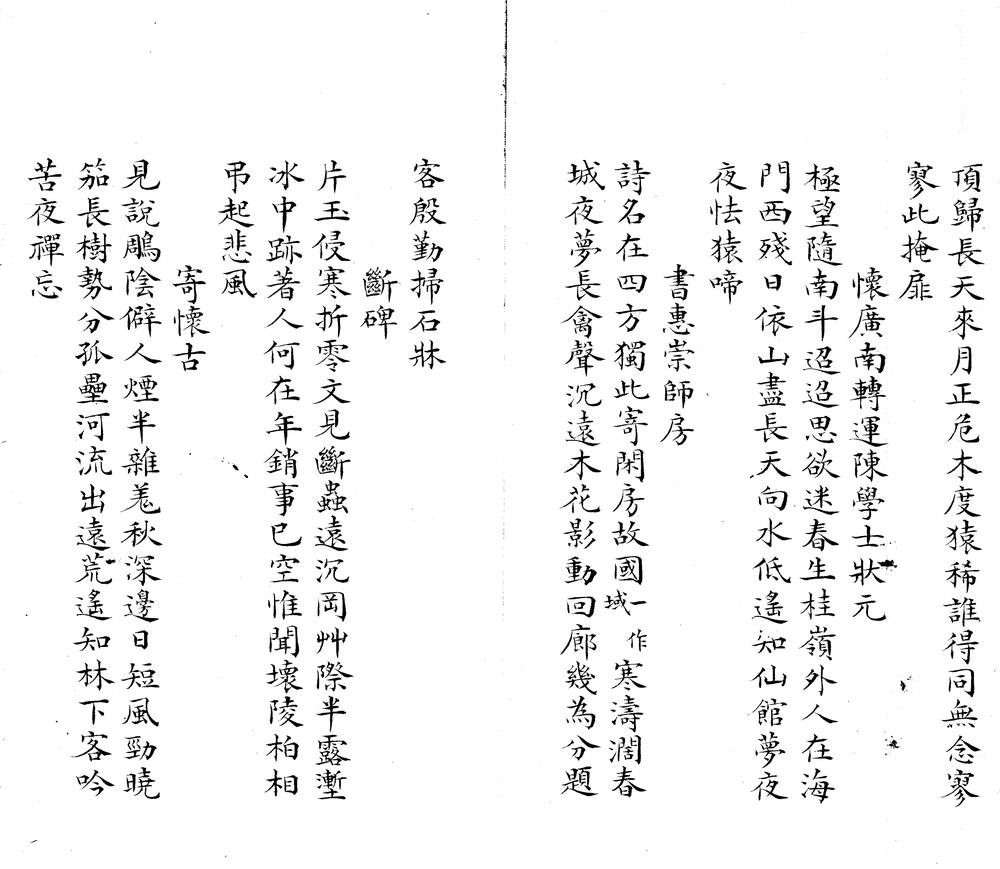 頂歸長天來月正危木度猿稀誰得同無念寥
寥此掩扉
懷廣南轉運陳學士狀元
極望隨南斗迢迢思欲迷春生桂嶺外人在海
門西殘日依山盡長天向水低遙知仙館夢夜
夜怯猿啼
書惠崇師房
詩名在四方獨此寄閑房故國一作域寒濤濶春
城夜夢長禽聲沉遠木花影動回廊幾為分題
客殷勤掃石牀
斷碑
片玉侵寒折零文見斷蟲遠沉岡艸際半露壍
冰中跡著人何在年銷事已空惟聞壞陵柏相
弔起悲風
寄懷古
見說鵰陰僻人煙半雜羗秋深邊日短風勁曉
笳長樹勢分孤壘河流出遠荒遙知林下客吟
苦夜禪忘